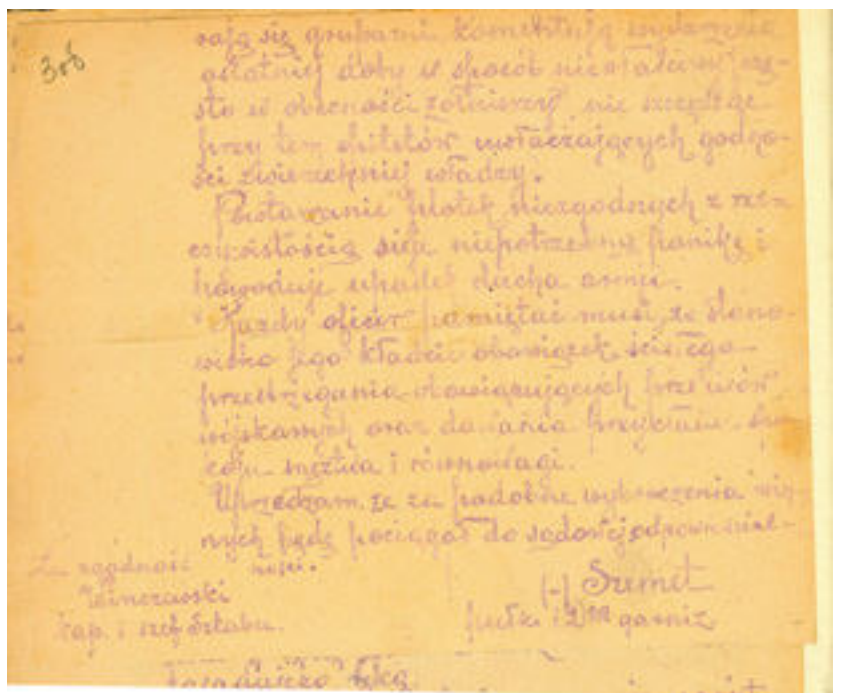 308
rają się grupami komentują wydarzenia
ostatniej doby w sposób nietaktowny czę-
sto w obecności żołnierzy nie szczędząc
przy tem epitetów uwłaczających godno-
ści zwierzchniej władzy.
Powtarzanie plotek niezgodnych z rze-
czywistością sieje niepotrzebną panikę i
powoduje upadek ducha armii.
Każdy oficer pamiętać musi, że stano-
wisko jego kładzie obowiązek ścisłego
przestrzegania obowiązujących
wojskowych oraz dawania przykładu spo-
koju męstwa i równowagi.
Uprzedzam że za podobne wykroczenia win-
nych będę pociągał do sądowej odpowiedzial-
ności.
Za zgodność
kap. i szef Sztabu.
(-) Szemet
pułk. i garniz.